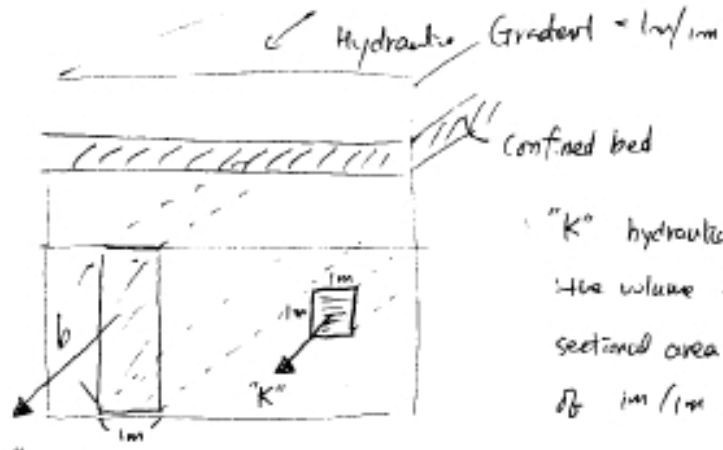 Hydraulic Gradient = 1m/1m
Confined bed
"K" hydraulic
the volume
sectional area
of 1m/1m
1m
1m
b
"K"
1m